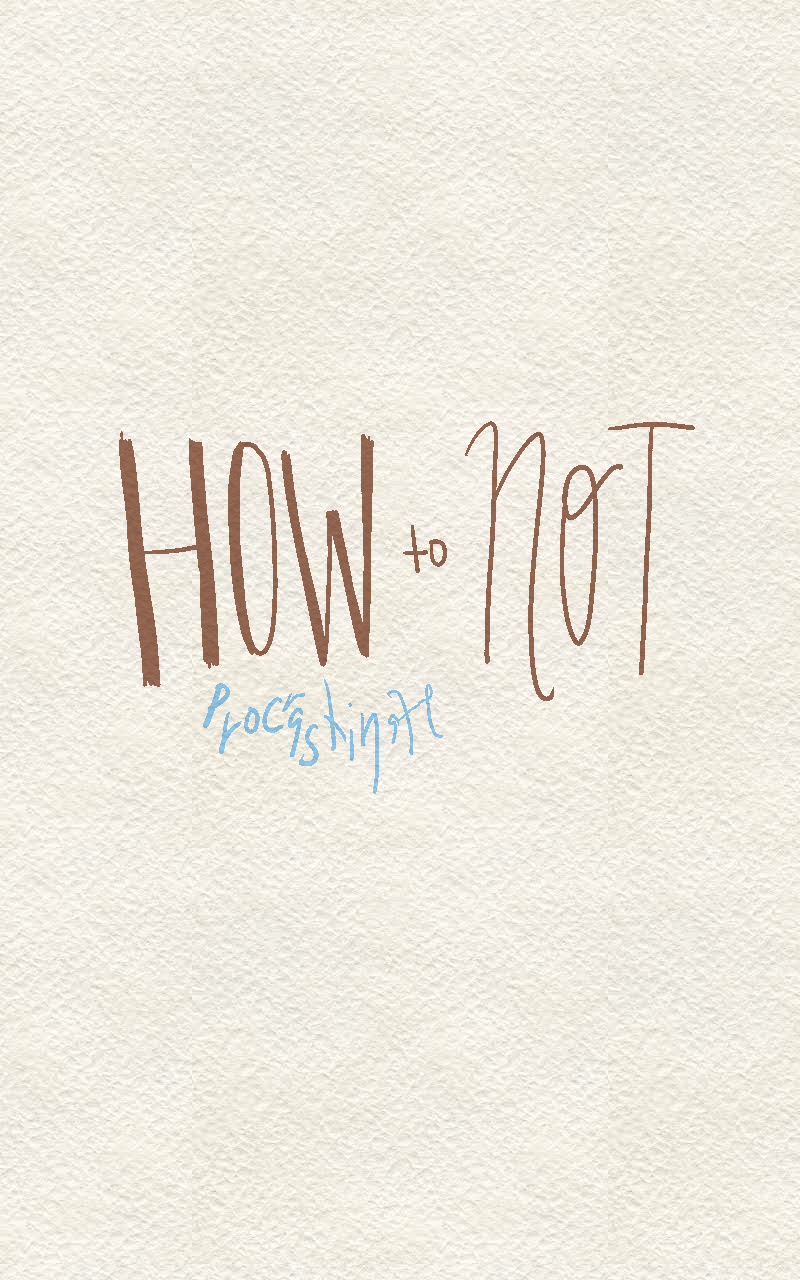 HOW to NOT
Procrastinate